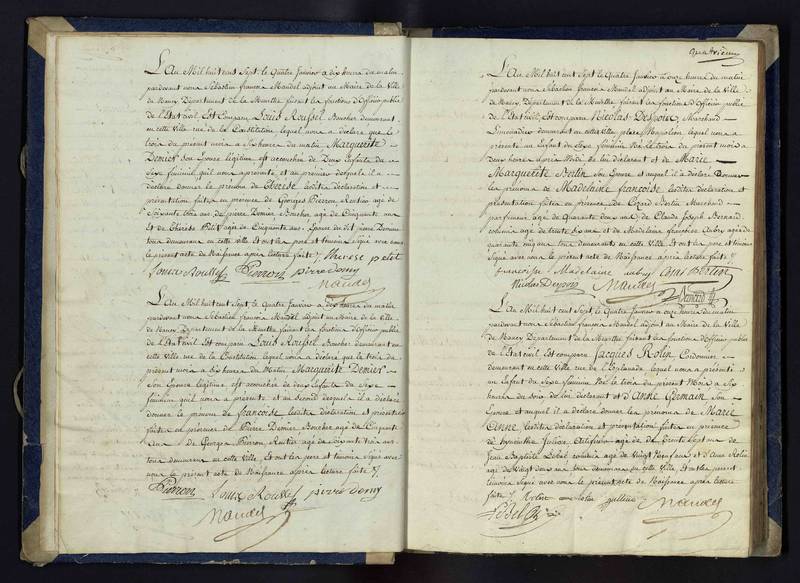 L'an Mil huit cent Sept, le Quatre Janvier a dix heures du matin
pardevant nous Sébastien françois Mandel adjoint au Maire de la Ville
de Nancy Departement de la Meurthe faisant les fonctions d'Officier public
de l'Etat Civil, Est Comparu Louis Roussel Boucher demeurant
en cette Ville rue de la Constitution lequel nous a déclaré que le
trois du present mois a Six heures du matin Marguerite
Demier Son Epouse légitime est accouchée de Deux Enfants du
Sexe feminin, qu'il nous a presenté, et au premier desquels il a
declaré donner le prenom de Therese lesdites déclaration et
présentation faites en presence de Georges Pierron Routier agé de
Soixante trois ans de pierre Demier Boucher agé de Cinquante ans
Et de Therese agée de Cinquante ans. Epouse dudit pierre Demier
tous demeurant en cette ville et ont les pere et temoins Signé avec nous
le present acte de Naissance après lecture faite. Therese pelet
Louis Roussel Pierron pierre Demy
Mandel
L'An Mil huit cent Sept, le Quatre Janvier a dix heures du matin
pardevant nous Sébastien francois Mandel adjoint au Maire de la Ville
de Nancy Departement de la Meurthe faisant les fonctions d'Officier public
de l'Etat Civil Est comparu Louis Roussel Boucher demeurant en
cette Ville rue de la Constitution lequel nous a déclaré que le trois du
présent mois a Six heures du Matin Marguerite Demier
Son Epouse légitime est accouchée de deux Enfants du Sexe
feminin qu'il nous a presenté et au second desquels il a déclaré
donner le prenom de francoise lesdites déclaration et présentation
faites en presence de Pierre Demier Boucher agé de Cinquante
Ans de George Pierron Routier agé de Soixante trois ans
tous demeurant en cette Ville, Et ont les pere et temoins Signé avec
nous le present acte de Naissance après lecture faite
Pierron Louis Roussel pierre Demy
Mandel
quatrieme
L'An Mil huit cent Sept, le Quatre Janvier a onze heures du matin
pardevant nous Sébastien francois Mandel adjoint au Maire de la Ville
de Nancy, Departement de la Meurthe faisant les fonctions d'Officier public
de l'Etat Civil est comparu Nicolas Despoix, Marchand
demeurant en cette ville place Napoleon lequel nous a
presenté un Enfant du Sexe feminin Né le trois du present mois a
Deux heures après Midi de lui declarant et de Marie
Marguerite Bertin Son Epouse et auquel il a déclaré Donner
les prenoms de Madelaine francoise lesdites déclaration et
présentation faites en presence de Cezard Bertin Marchand
parfumeur agé de Quarante deux ans, de Claude Joseph Bernard,
agé de trente Six ans et de Madelaine francoise Aubry agée de
quarante cinq ans tous demeurants en cette Ville Et ont les pere et temoins
Signé avec nous le present acte de Naissance après lecture faite
francoise Madelaine aubry Cezar Bertin
Nicolas Despoix Mandel
Bernard
L'An Mil huit cent Sept, le Quatre Janvier a onze heures du matin
pardevant nous Sébastien françois Mandel, adjoint au Maire de la Ville
de Nancy Departement de la Meurthe faisant les fonctions d'Officier public
de l'Etat Civil est comparu Jacques Rolin Cordonnier
demeurant en cette Ville rue de l'Esplanade lequel nous a presenté
un Enfant du Sexe feminin Né le trois du present Mois a Six
heures du Soir de lui déclarant et d'Anne Germain Son
Epouse et auquel il a declaré donner les prenoms de Marie
Anne, lesdites déclaration et présentation faites en presence
de hyacinthe Julien agé de trente Sept ans de
Jean Baptiste Lebel agé de Vingt Neuf ans et d'Anne Rolin
agée de Vingt deux ans tous demeurans en cette Ville Et ont les pere et
temoins Signé avec nous le present acte de Naissance après lecture
faite Rolin anne Rolin Jullien Mandel
Lebel